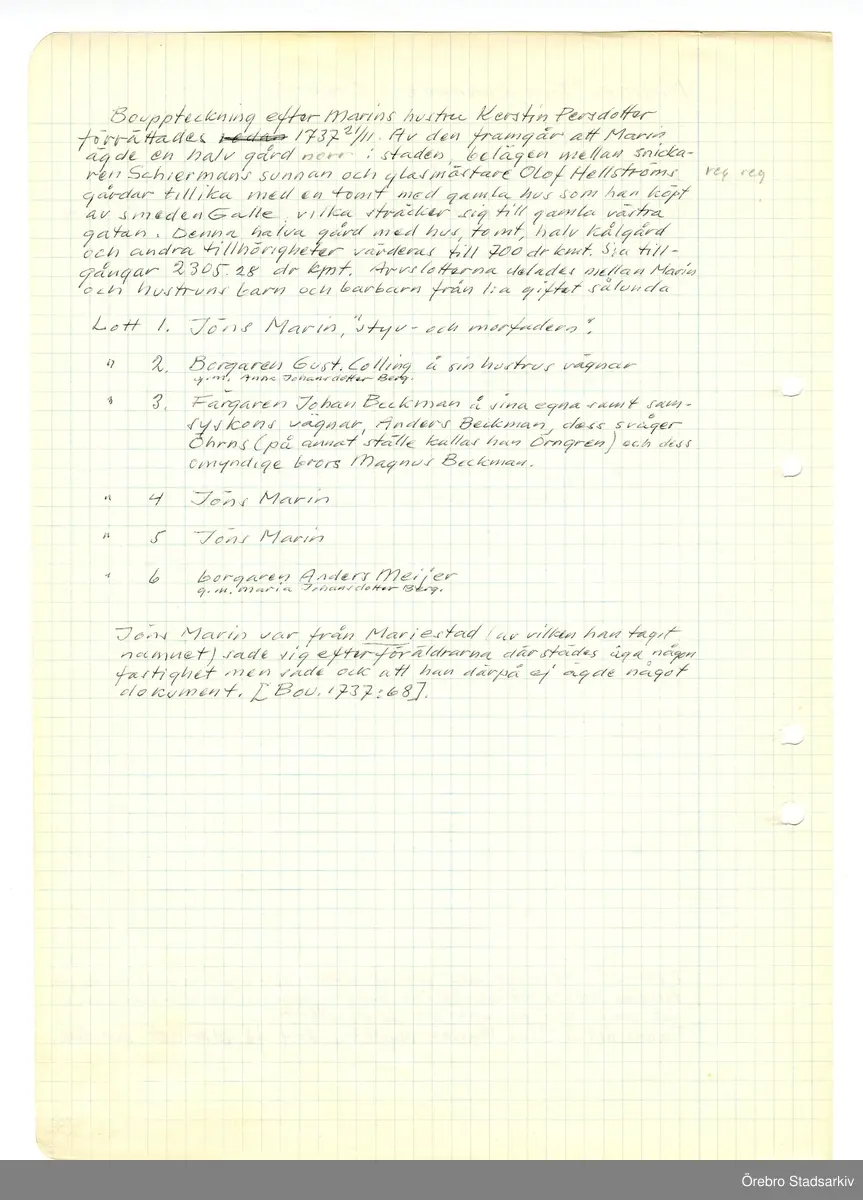 Bouppteckning efter Marins hustru Kerstin Persdotter
förrättades redan 1737 21/11. Av den framgår att Marin
ägde en halv gård norr i staden, belägen mellan snicka-
ren Schiermans sunnan och glasmästare Olof Hellströms
reg reg
gårdar tillika med en tomt med gamla hus som han köpt
av smeden Galle, vilka sträcker sig till gamla västra
gatan. Denna halva gård med hus, tomt, halv kålgård
och andra tillhörigheter värderas till 700 dr kmt. S:a till-
gångar 2305.28 dr kpmt. Arvslotterna delades mellan Marin
och hustruns barn och barbarn från 1:a giftet sålunda
Lott 1. Jöns Marin, "styv- och morfadern".
" 2. Borgaren Gust. Colling å sin hustrus vägnar
g.m. Anna Johansdotter Berg.
" 3. Färgaren Johan Beckman å sina egna samt sam-
syskons vägnar, Anders Beckman, dess svåger
Öhrns (på annat ställe kallas han Örngren) och dess
omyndige brors Magnus Beckman.
" 4 Jöns Marin
" 5 Jöns Marin
" 6 borgaren Anders Meijer
g.m. Maria Johansdotter Berg.
Jöns Marin var från Mariestad (av vilken han tagit
namnet) sade sig efter föräldrarna därstädes äga någon
fastighet men sade ock att han därpå ej ägde något
dokument. [Bou. 1737:68].
Örebro Stadsarkiv